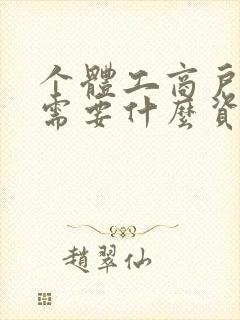 个體工商戶
需要什麽資
趙翠仙